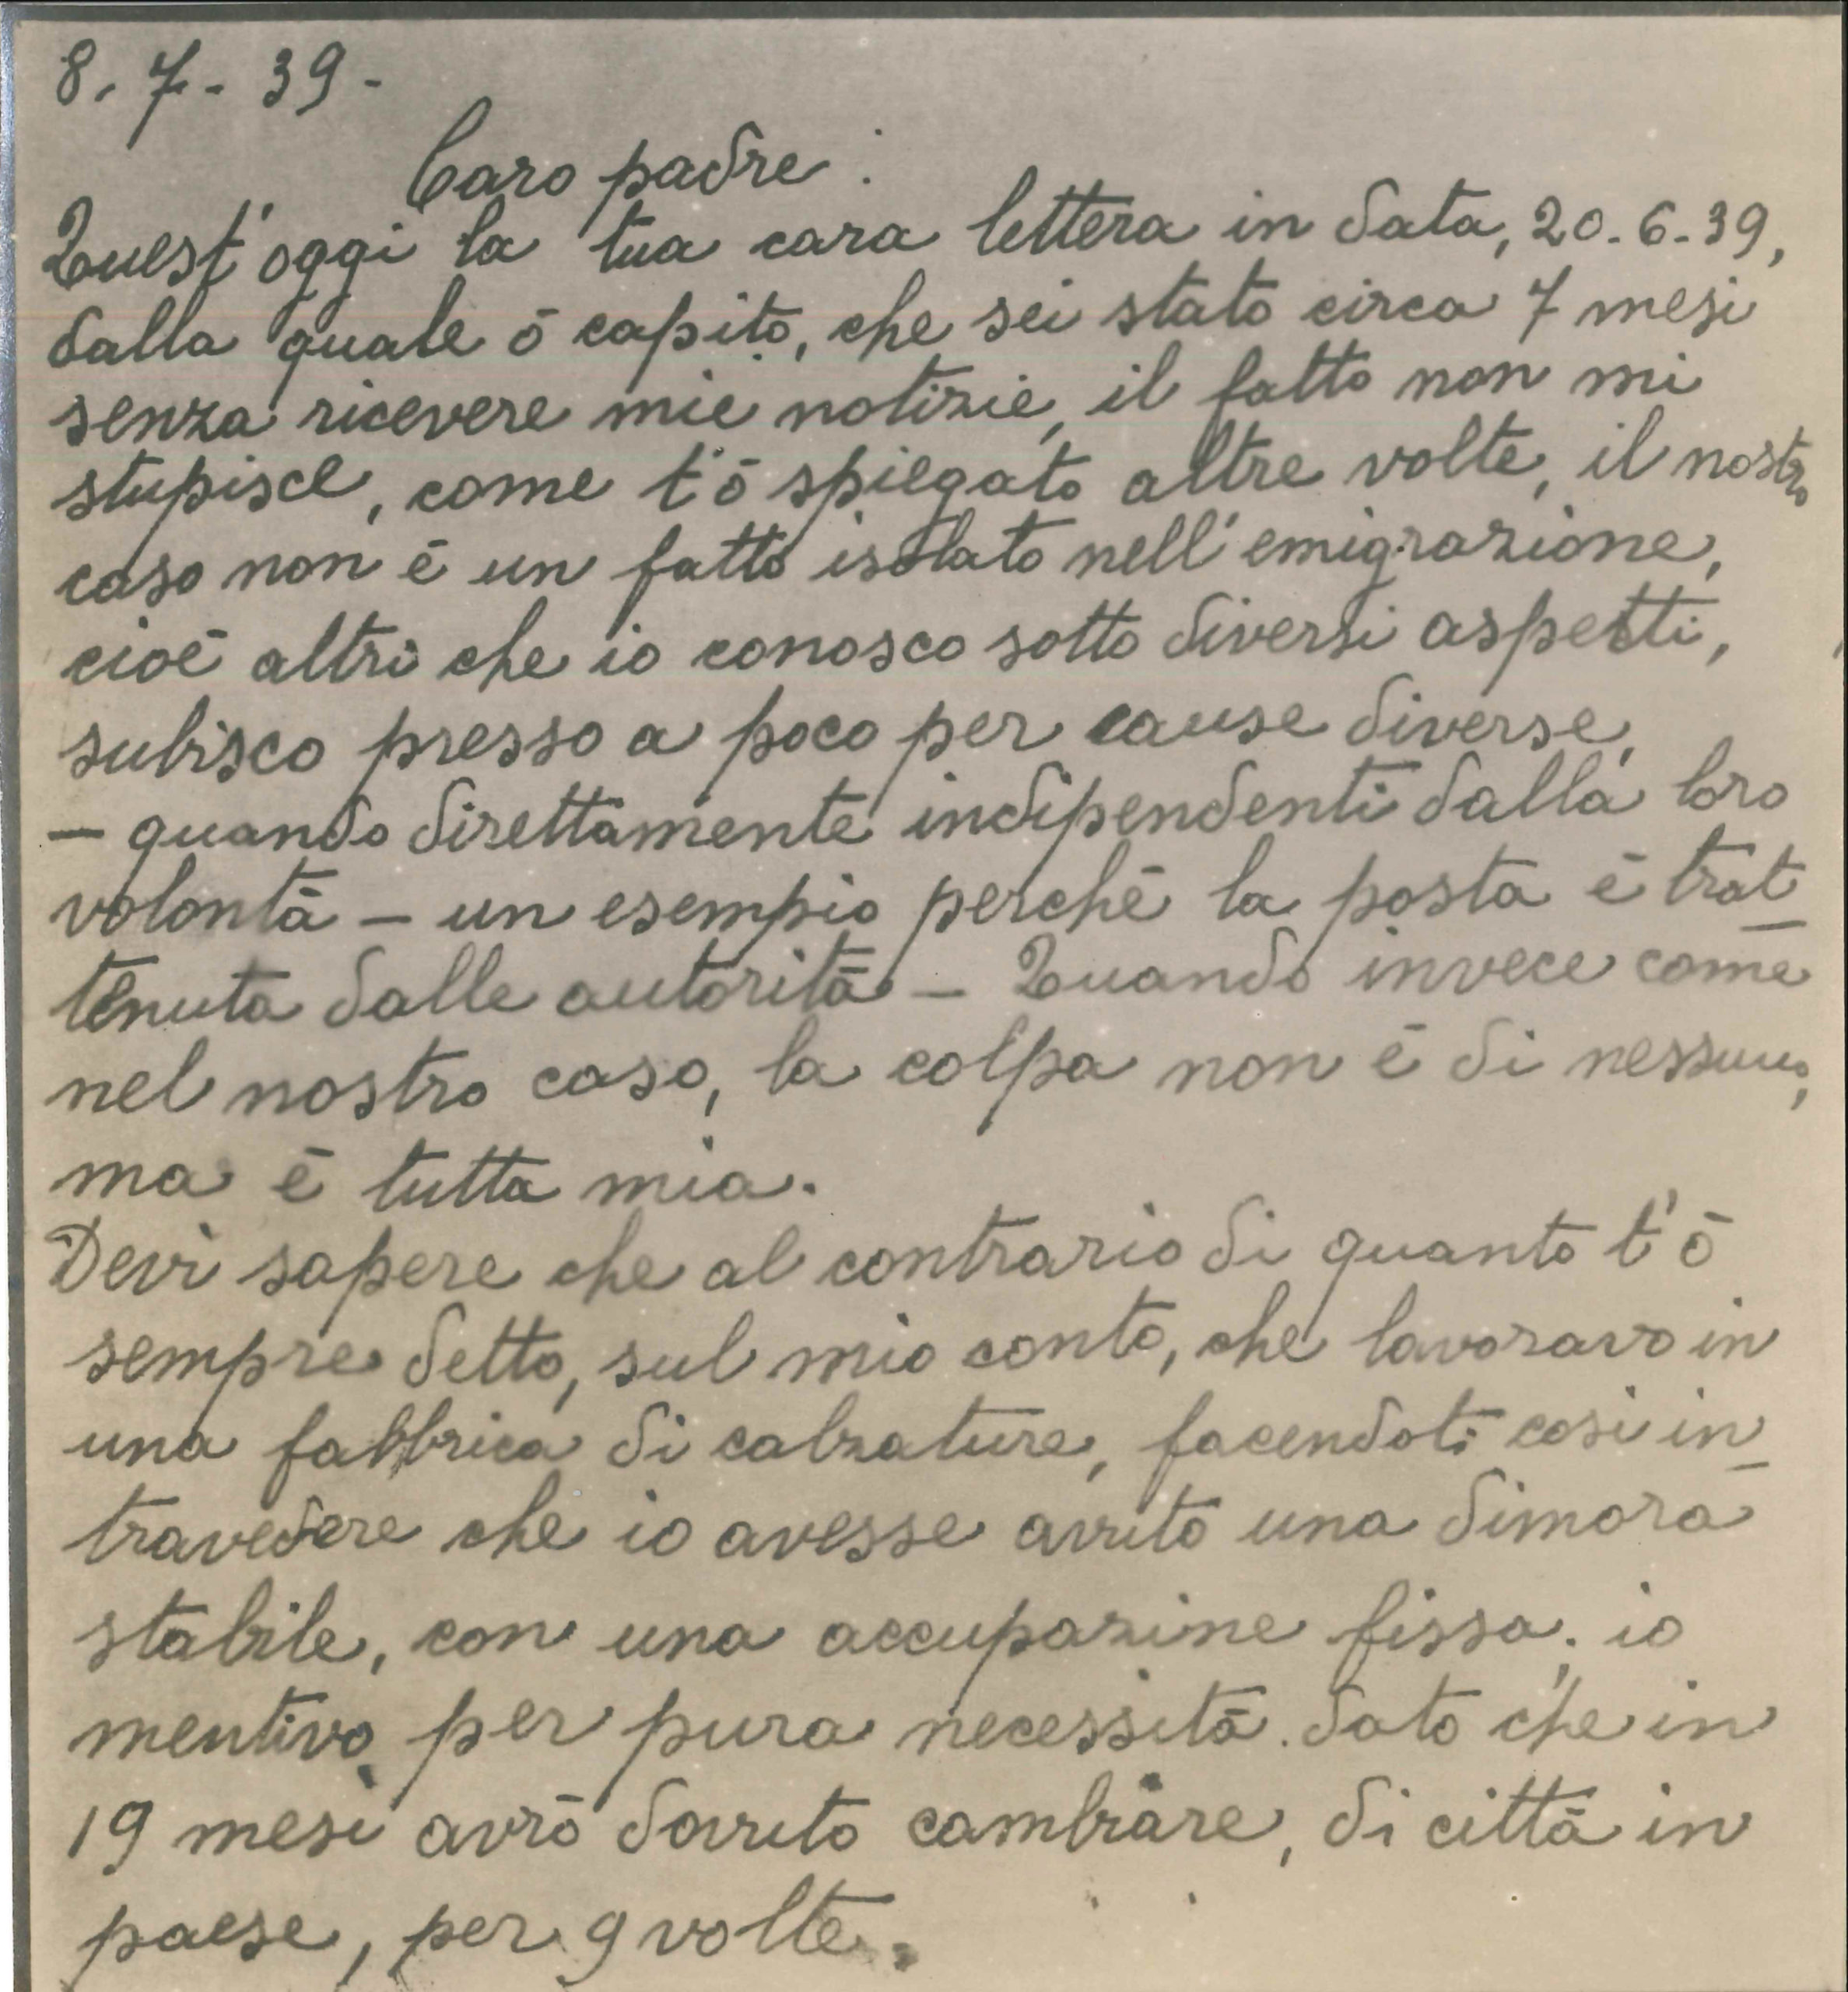 8. 7. 39 -
Caro padre:
Quest'oggi la tua cara lettera in data, 20-6-39,
dalla quale ō capito, che sei stato circa 7 mesi
senza ricevere mie notizie, il fatto non mi
stupisce, come t'ō spiegato altre volte, il nostro
caso non ē un fatto isolato nell'emigrazione,
cioē altri che io conosco sotto diversi aspetti,
subisco presso a poco per cause diverse,
- quando direttamente indipendenti dalla loro
volontā - un esempio perchē la posta ē trat
tenuta dalle autoritā - Quando invece come
nel nostro caso, la colpa non ē di nessuno,
ma ē tutta mia.
Devi sapere che al contrario di quanto t'ō
sempre detto, sul mio conto, che lavoravo in
una fabbrica di calzature, facendoti cosi in_
travedere che io avesse avuto una dimora
stabile, con una accupazine fissa; io
mentivo per pura necessitā. dato che in
19 mesi avrō dovuto cambiare, di cittā in
paese, per 9 volte.